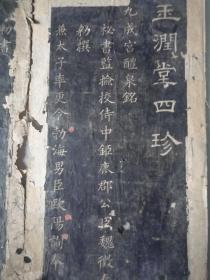 玉潤堂四珍
九成宮醴泉銘
秘書監撿挍侍中鉅鹿郡公臣魏徵
勑撰
兼太子率更令勃海男臣歐陽詢奉
勑書